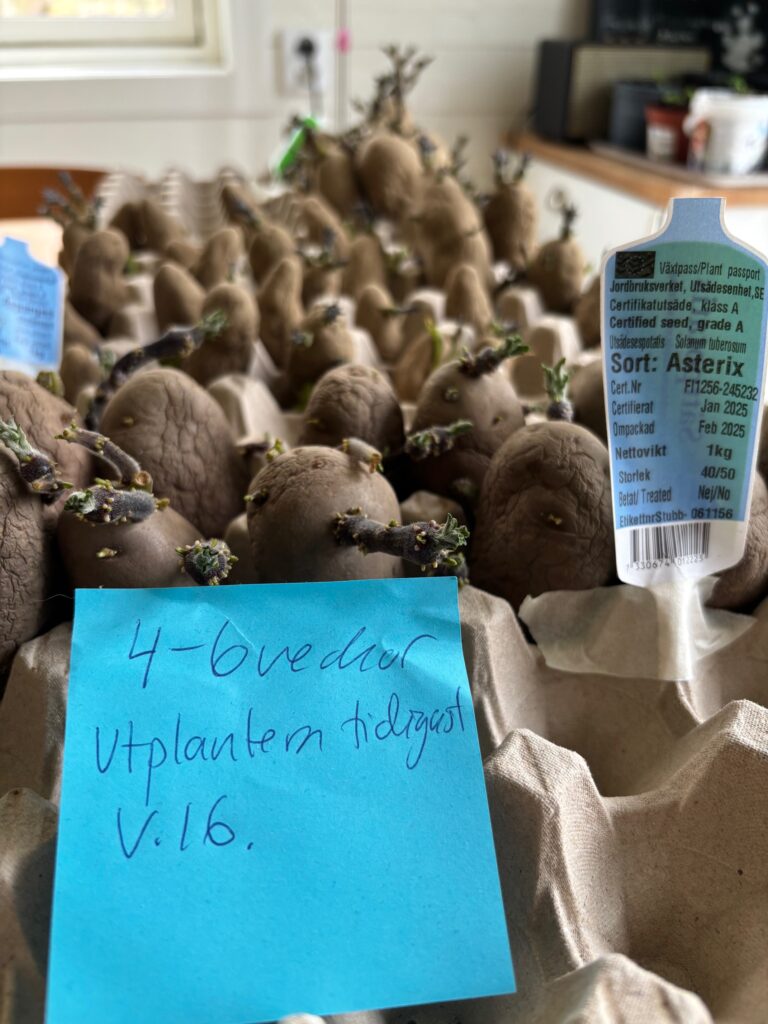 Växtpass/Plant passport
Jordbruksverket, Utsädesenhet,SE
Certifikatutsäde, klass A
Certified seed, grade A
Utsädespotatis Solanum tuberosum
Sort: Asterix
Cert.Nr FI1256-245232
Certifierat Jan 2025
Ompackad Feb 2025
Nettovikt 1kg
Storlek 40/50
Betat/Treated Nej/No
EtikettnrStubb- 061156
7 330674 012223
4-6 veckor
Utplantern tidigast
V.16.